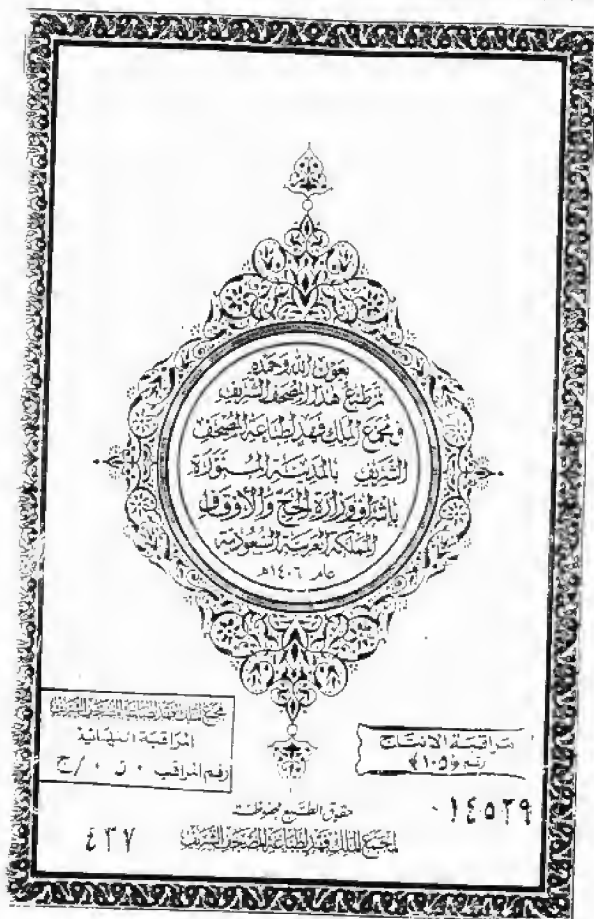 بعون الله وحمده
تم طبع هذا المصحف الشريف
في مجمع الملك فهد لطباعة المصحف
الشريف بالمدينة المنورة
بإشراف وزارة الحج والأوقاف
المملكة العربية السعودية
عام ١٤٠٦هـ
مجمع الملك فهد لطباعة المصحف الشريف
المراقبة النهائية
رقم المراقب
مراقبة الانتاج
رقم ﴿١٠٥﴾
حقوق الطبع محفوظة
٠١٤٥٢٩
لمجمع الملك فهد لطباعة المصحف الشريف
٤٣٧